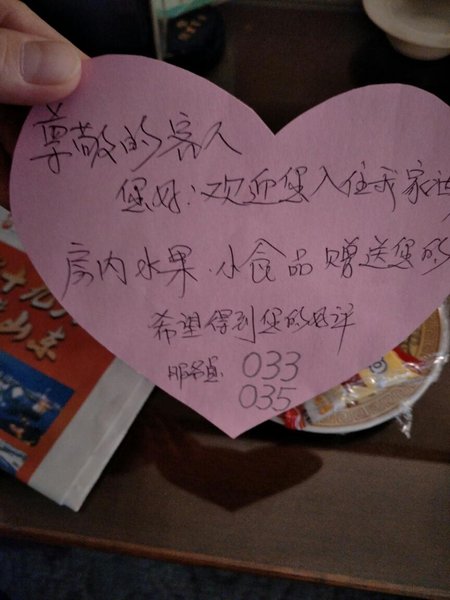 尊敬的客人
您好:欢迎您入住我家
房内水果.小食品赠送您的
希望得到您的好评
服务员 033
035
山东